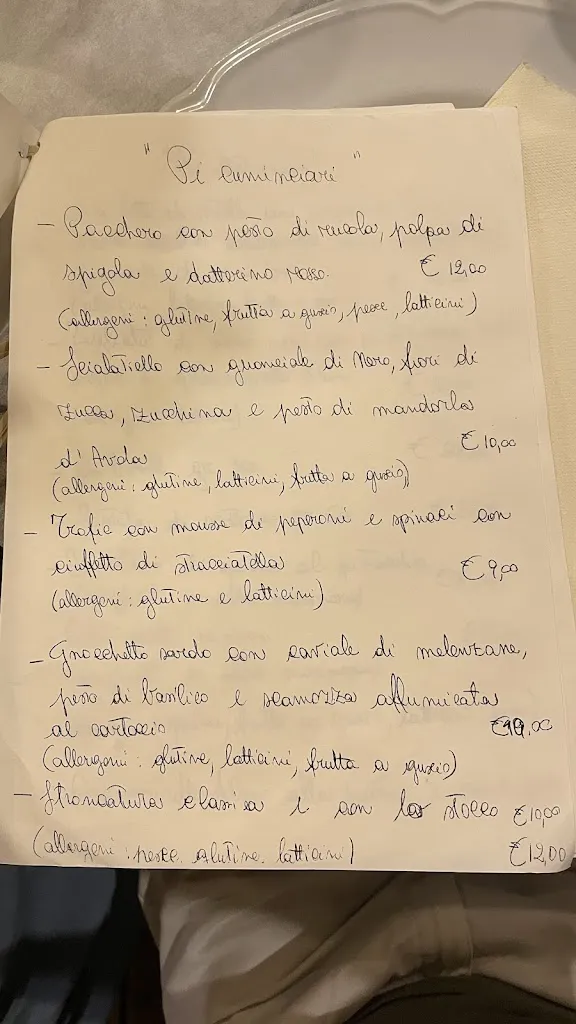 " Pi cuminciari "
- Pacchero con pesto di rucola, polpa di
spigola e datterino rosso. € 12,00
(allergeni: glutine, frutta a guscio, pesce, latticini)
- Scialatiello con guanciale di Nero, fiori di
zucca, zucchina e pesto di mandorla
d'Avola € 10,00
(allergeni: glutine, latticini, frutta a guscio)
- Trofie con mousse di peperoni e spinaci con
ciuffetto di stracciatella € 9,00
(allergeni: glutine e latticini)
- Gnocchetto sardo con caviale di melenzane,
pesto di basilico e scamorza affumicata
al cartoccio
(allergeni: glutine, latticini, frutta a guscio)
- Stroncatura classica e con lo stocco € 10,00
(allergeni: pesce, glutine, latticini) € 12,00